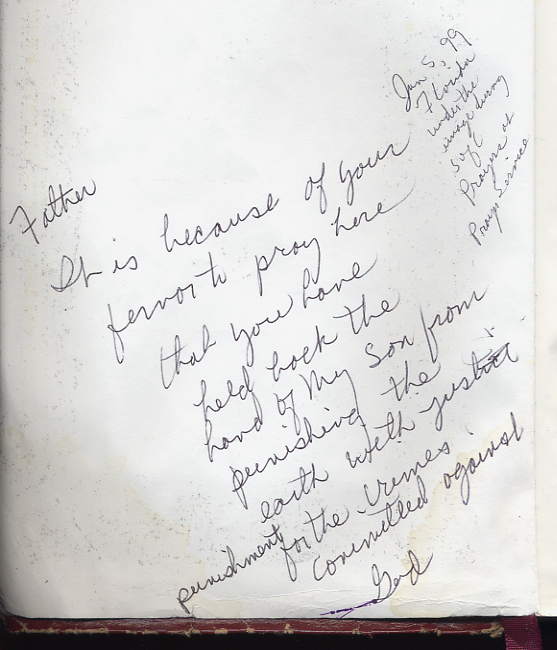 Jan 5, 99
Florida
under the
image during
Prayers at
Prayer Service
Father
It is because of your
fervor to pray here
that you have
held back the
hand of My Son from
punishing the
earth with just
punishment for the crimes
committed against
God